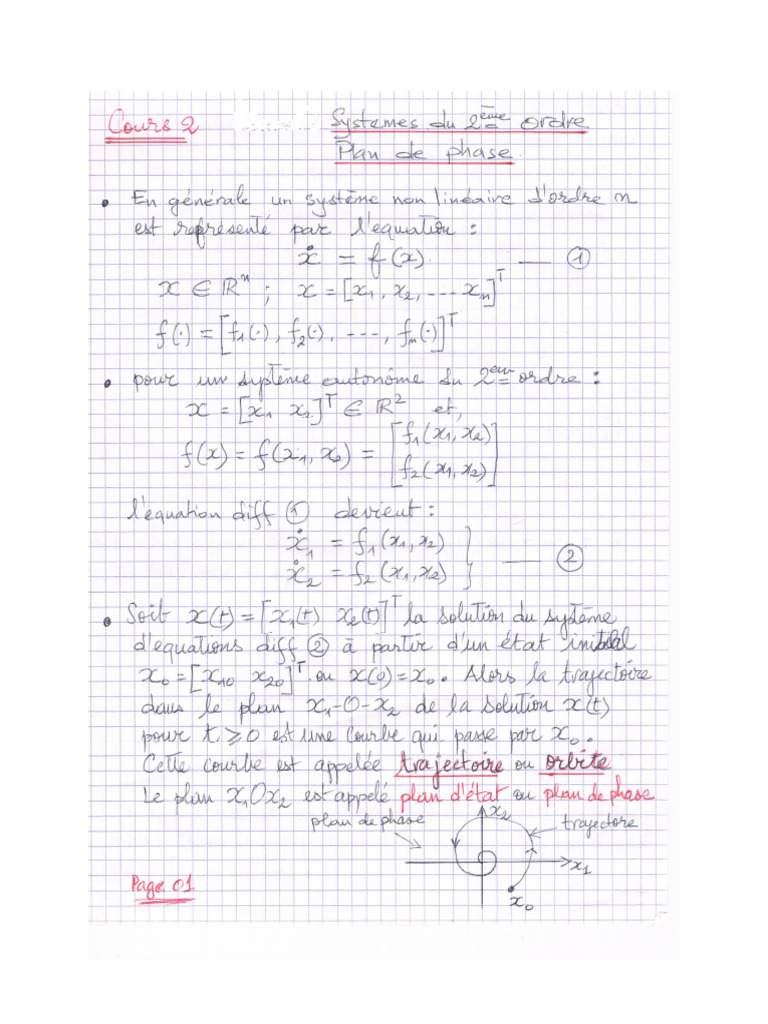 Cours 2 Systemes du 2ème ordre
Plan de phase.
• En générale un système non linéaire d'ordre n
est représenté par l'equation :
ẋ = f(x). — ①
x ∈ ℝⁿ ; x = [x₁, x₂, ... xₙ]ᵀ
f(·) = [f₁(·), f₂(·), ---, fₙ(·)]ᵀ
• pour un système autonôme du 2ème ordre :
x = [x₁ x₂]ᵀ ∈ ℝ² et,
f(x) = f(x₁, x₂) = [f₁(x₁, x₂)
f₂(x₁, x₂)]
l'équation diff ① devient :
ẋ₁ = f₁(x₁, x₂)
ẋ₂ = f₂(x₁, x₂) } — ②
• Soit x(t) = [x₁(t) x₂(t)]ᵀ la solution du système
d'equations diff ② à partir d'un état initial
x₀ = [x₁₀ x₂₀]ᵀ. ou x(0) = x₀. Alors la trajectoire
dans le plan x₁-O-x₂ de la solution x(t)
pour t ⩾ 0 est une courbe qui passe par x₀.
Cette courbe est appelée trajectoire ou orbite
Le plan x₁Ox₂ est appelé plan d'état ou plan de phase
plan de phase x₂ trajectore
x₁
x₀
Page 01